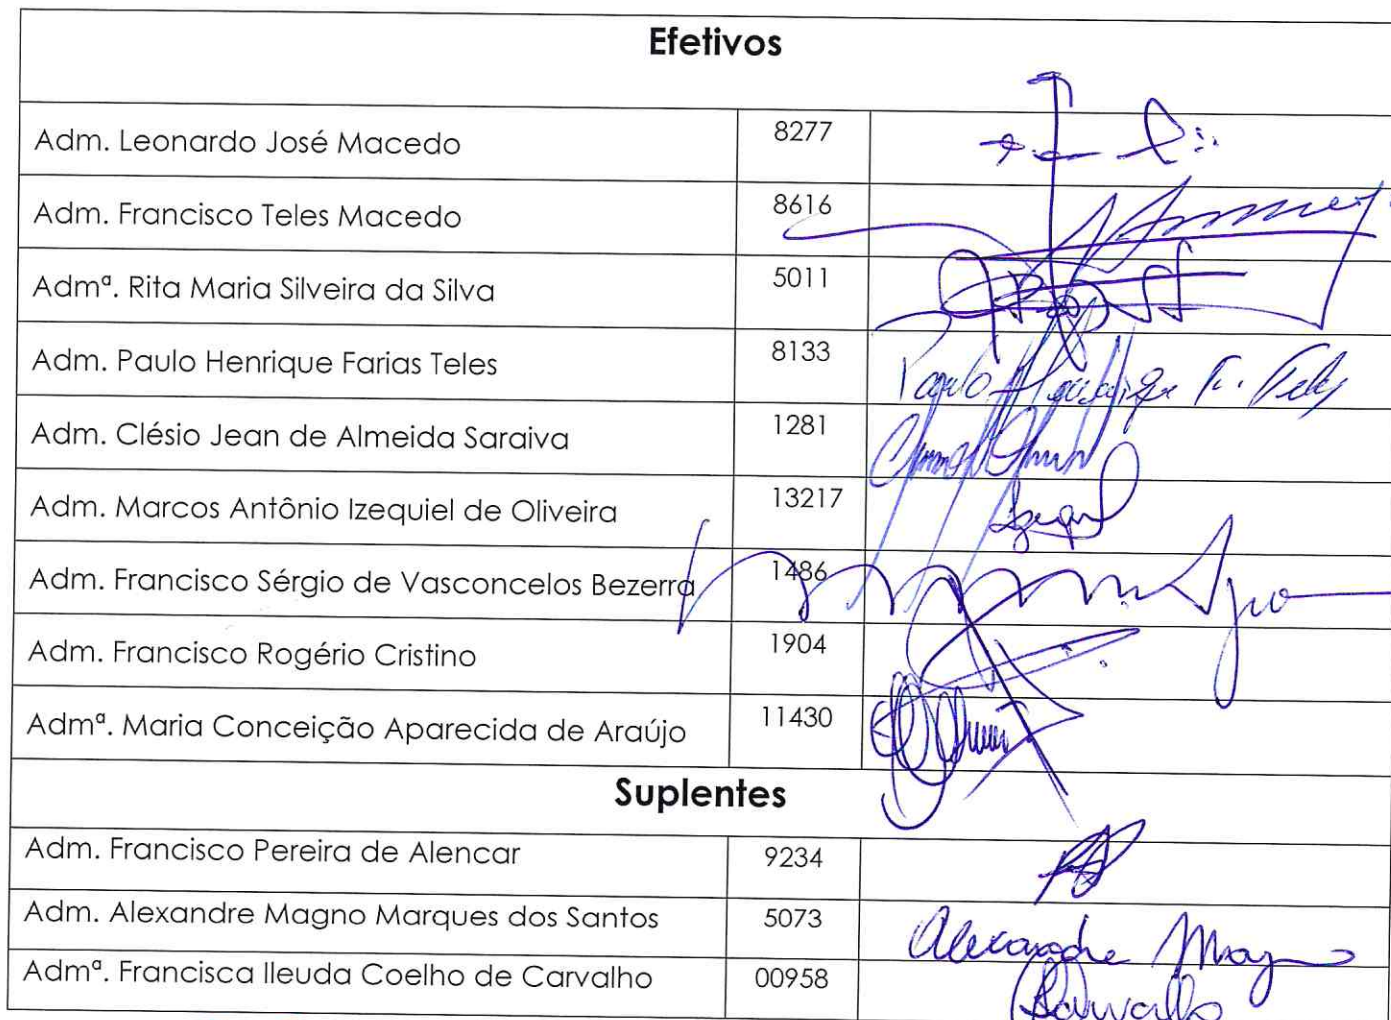 Efetivos
Adm. Leonardo José Macedo 8277
Adm. Francisco Teles Macedo 8616
Admª. Rita Maria Silveira da Silva 5011
Adm. Paulo Henrique Farias Teles 8133 Paulo Henrique F. Teles
Adm. Clésio Jean de Almeida Saraiva 1281
Adm. Marcos Antônio Izequiel de Oliveira 13217 Izequiel
Adm. Francisco Sérgio de Vasconcelos Bezerra 1486
Adm. Francisco Rogério Cristino 1904
Admª. Maria Conceição Aparecida de Araújo 11430
Suplentes
Adm. Francisco Pereira de Alencar 9234
Adm. Alexandre Magno Marques dos Santos 5073 Alexandre Magno
Admª. Francisca Ileuda Coelho de Carvalho 00958 Carvalho